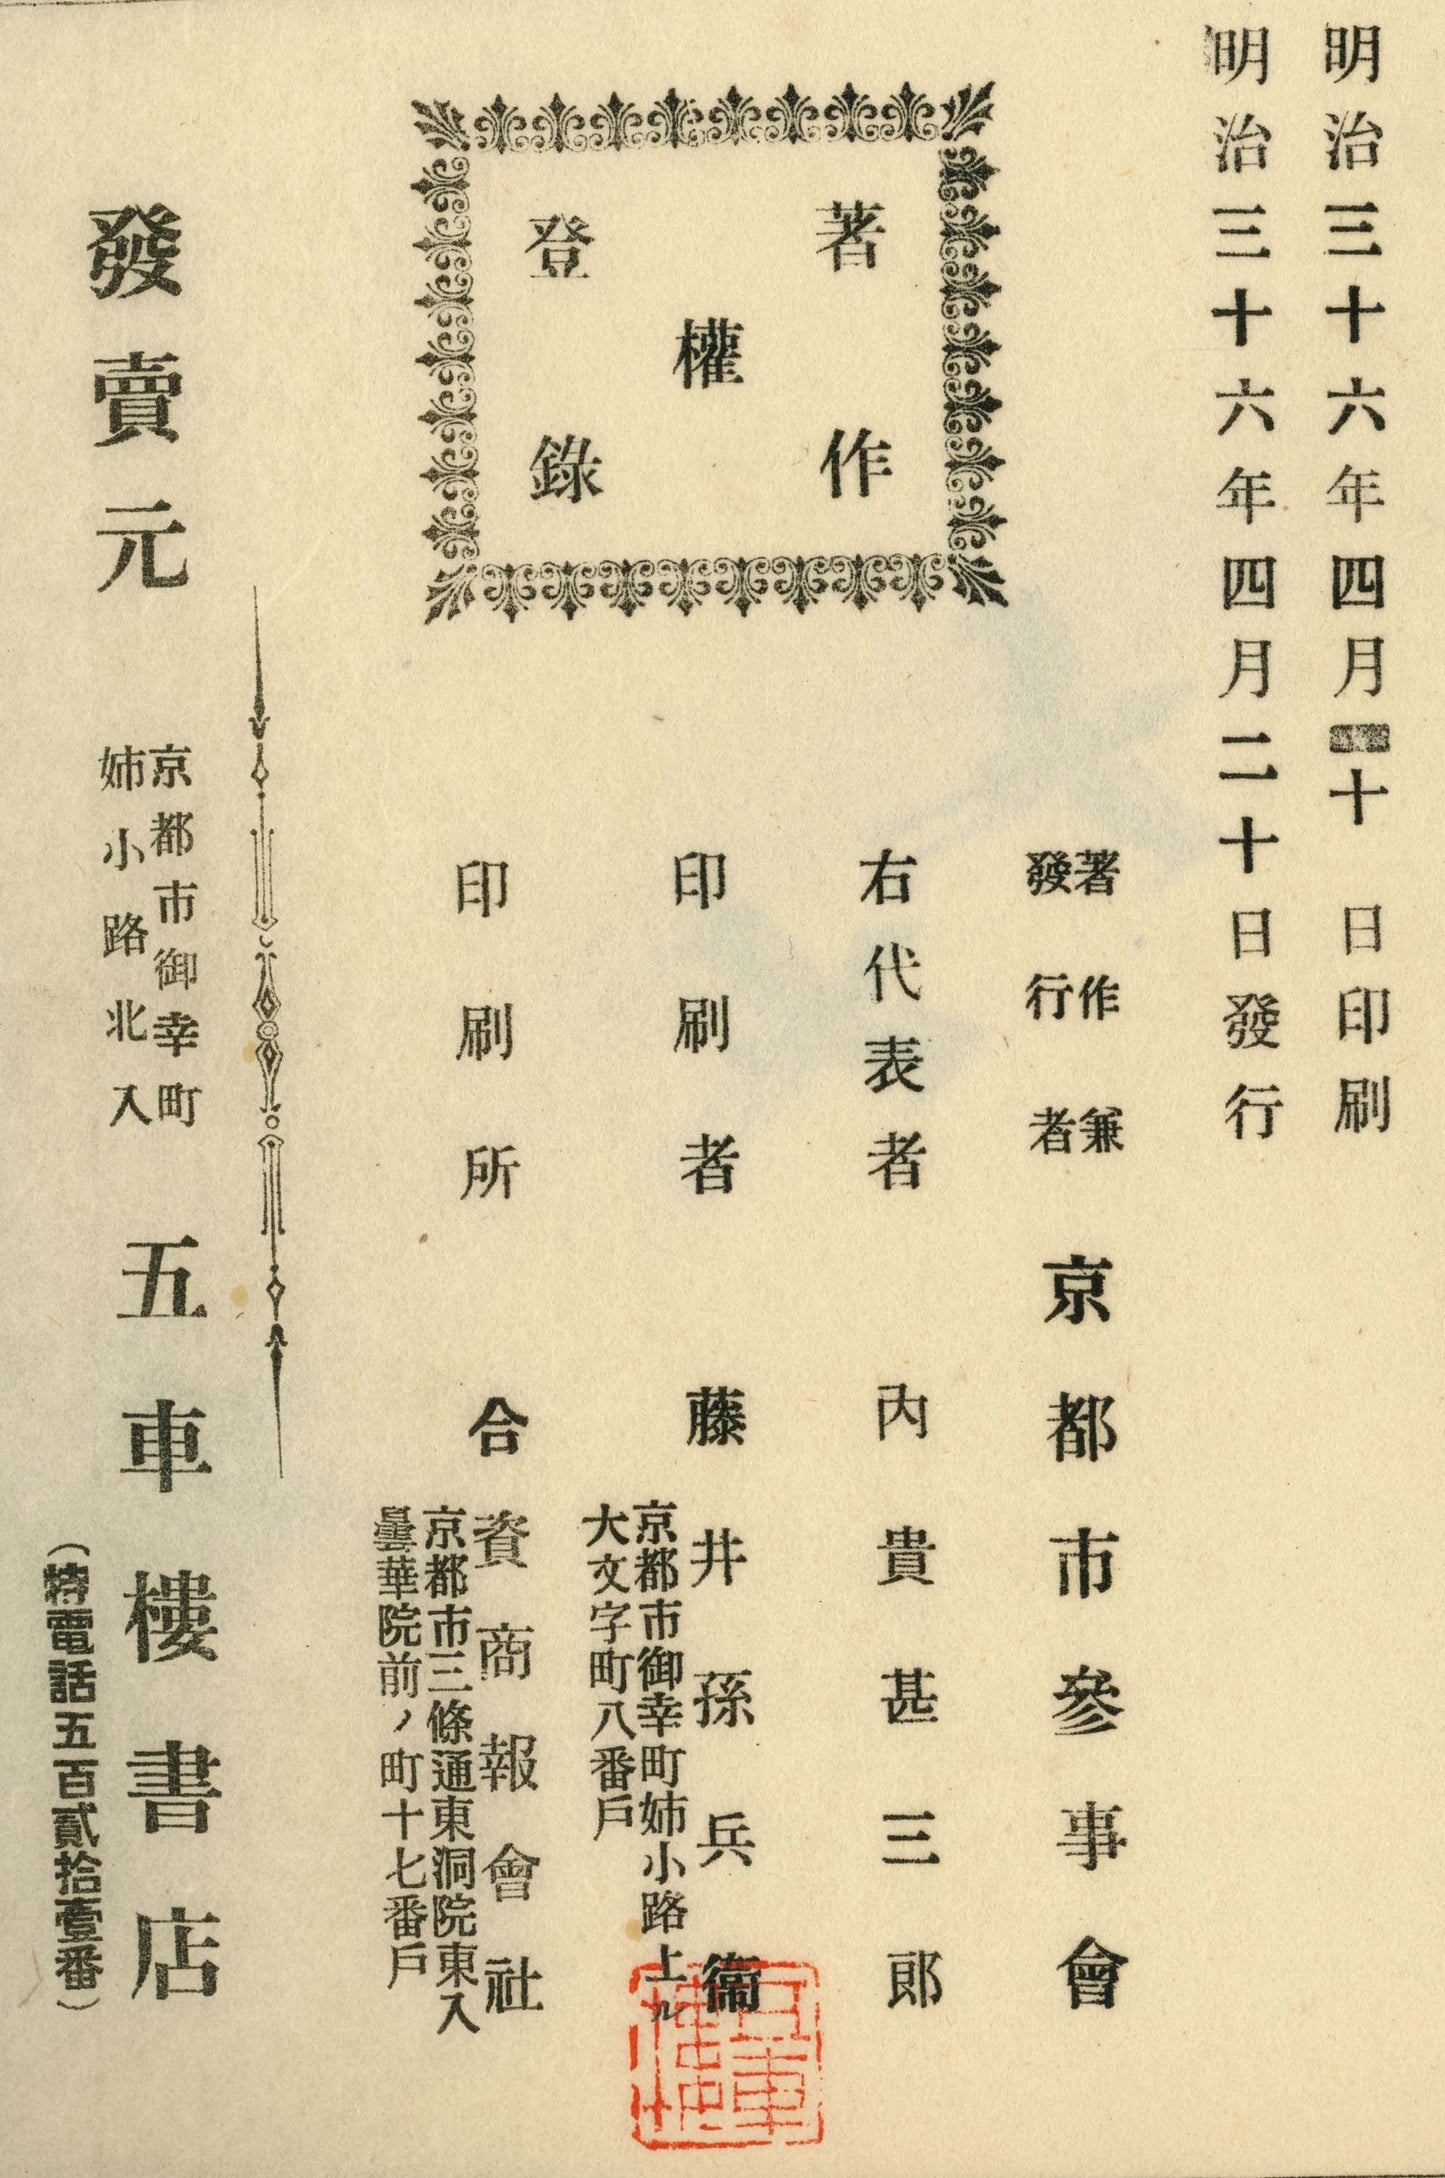 明治三十六年四月十日印刷
明治三十六年四月二十日發行
著作權登錄
著作兼
發行者
京都市參事會
右代表者
內貴甚三郎
印刷者
藤井孫兵衞
京都市御幸町姉小路上ル
大文字町八番戶
印刷所
合資商報會社
京都市三條通東洞院東入
曇華院前ノ町十七番戶
發賣元
京都市御幸町
姉小路北入
五車樓書店
(特電話五百貳拾壹番)
五車